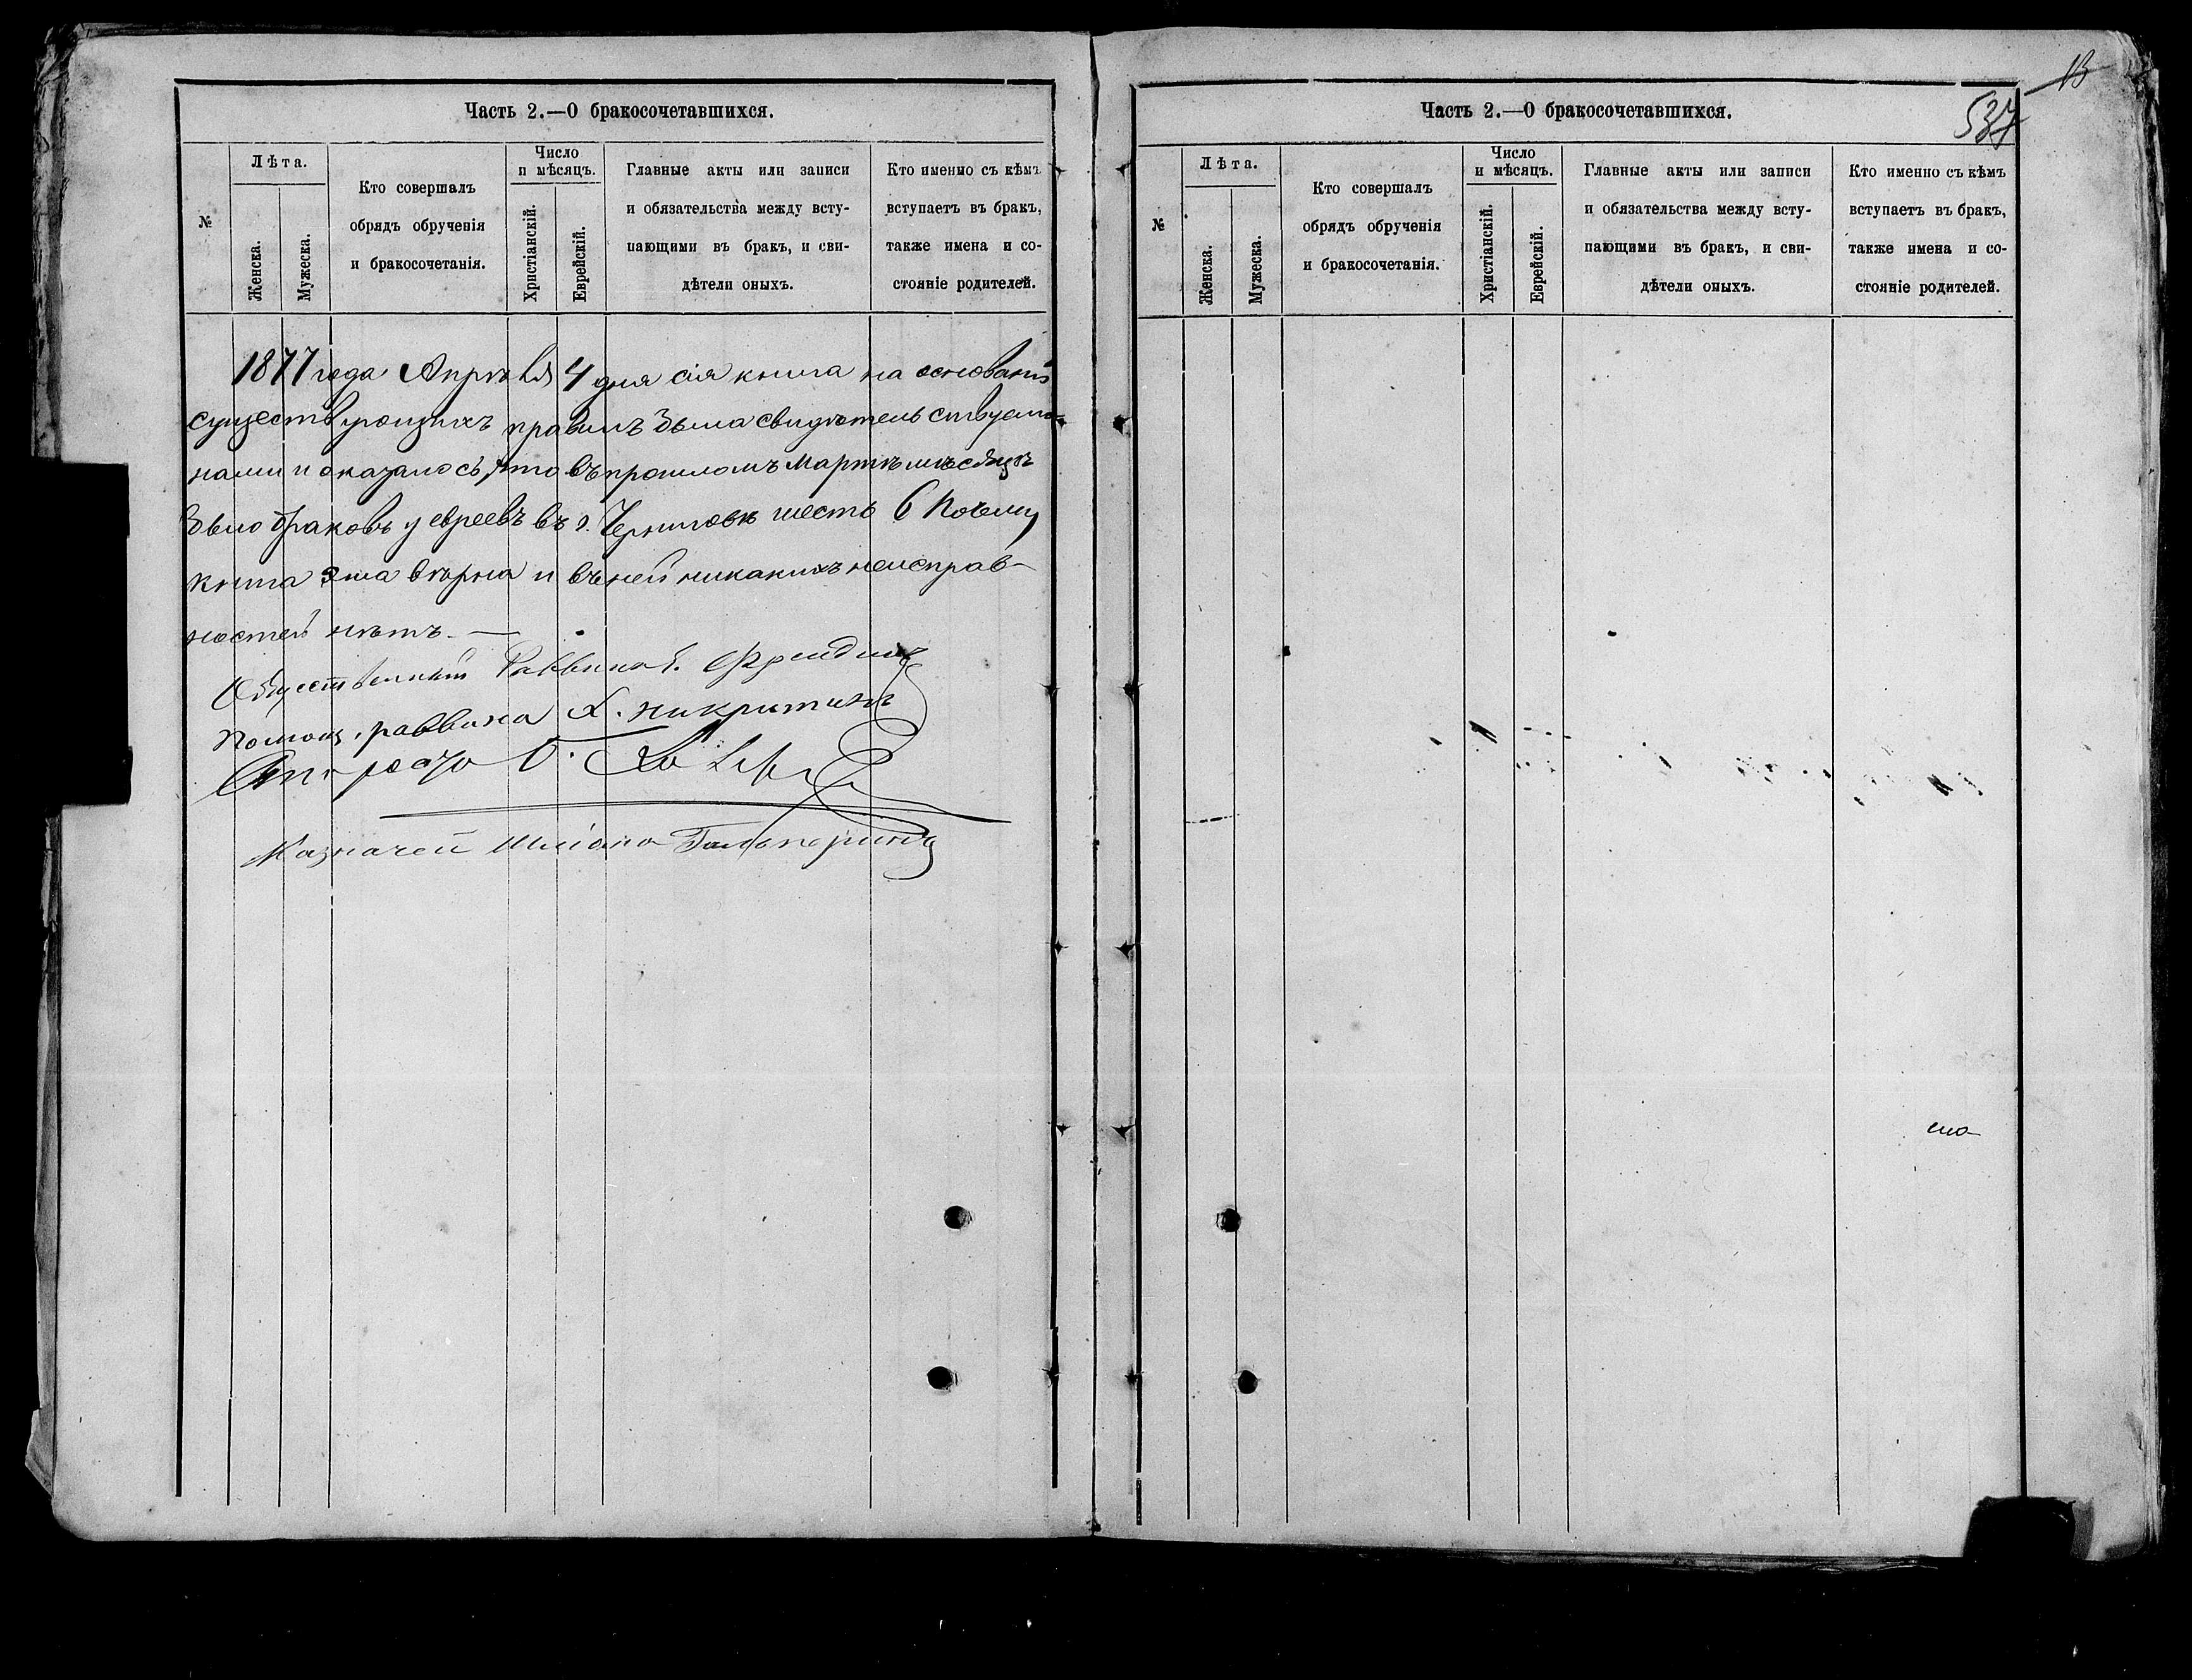 Часть 2.—О бракосочетавшихся.
№
Лѣта.
Женска.
Мужеска.
Кто совершалъ
обрядъ обрученія
и бракосочетанія.
Число
и мѣсяцъ.
Христіанскій.
Еврейскій.
Главные акты или записи
и обязательства между всту-
пающими въ бракъ, и сви-
дѣтели оныхъ.
Кто именно съ кѣмъ
вступаетъ въ бракъ,
также имена и со-
стояніе родителей.
1877 года Апрѣля 4 дня сія книга на основаніи
существующихъ правилъ была свидѣтельствуема
нами и оказалось, что въ прошломъ Мартѣ мѣсяцѣ
было браковъ у евреевъ въ г. Черниговѣ шесть 6 Почему
книга эта вѣрна и въ ней никакихъ неисправ-
ностей нѣтъ. —
Общественный Раввинъ
Помощ. раввина Х. Никритинъ
Староста
Казначей Шліома Гальперинъ
13
537
Часть 2.—О бракосочетавшихся.
№
Лѣта.
Женска.
Мужеска.
Кто совершалъ
обрядъ обрученія
и бракосочетанія.
Число
и мѣсяцъ.
Христіанскій.
Еврейскій.
Главные акты или записи
и обязательства между всту-
пающими въ бракъ, и сви-
дѣтели оныхъ.
Кто именно съ кѣмъ
вступаетъ въ бракъ,
также имена и со-
стояніе родителей.